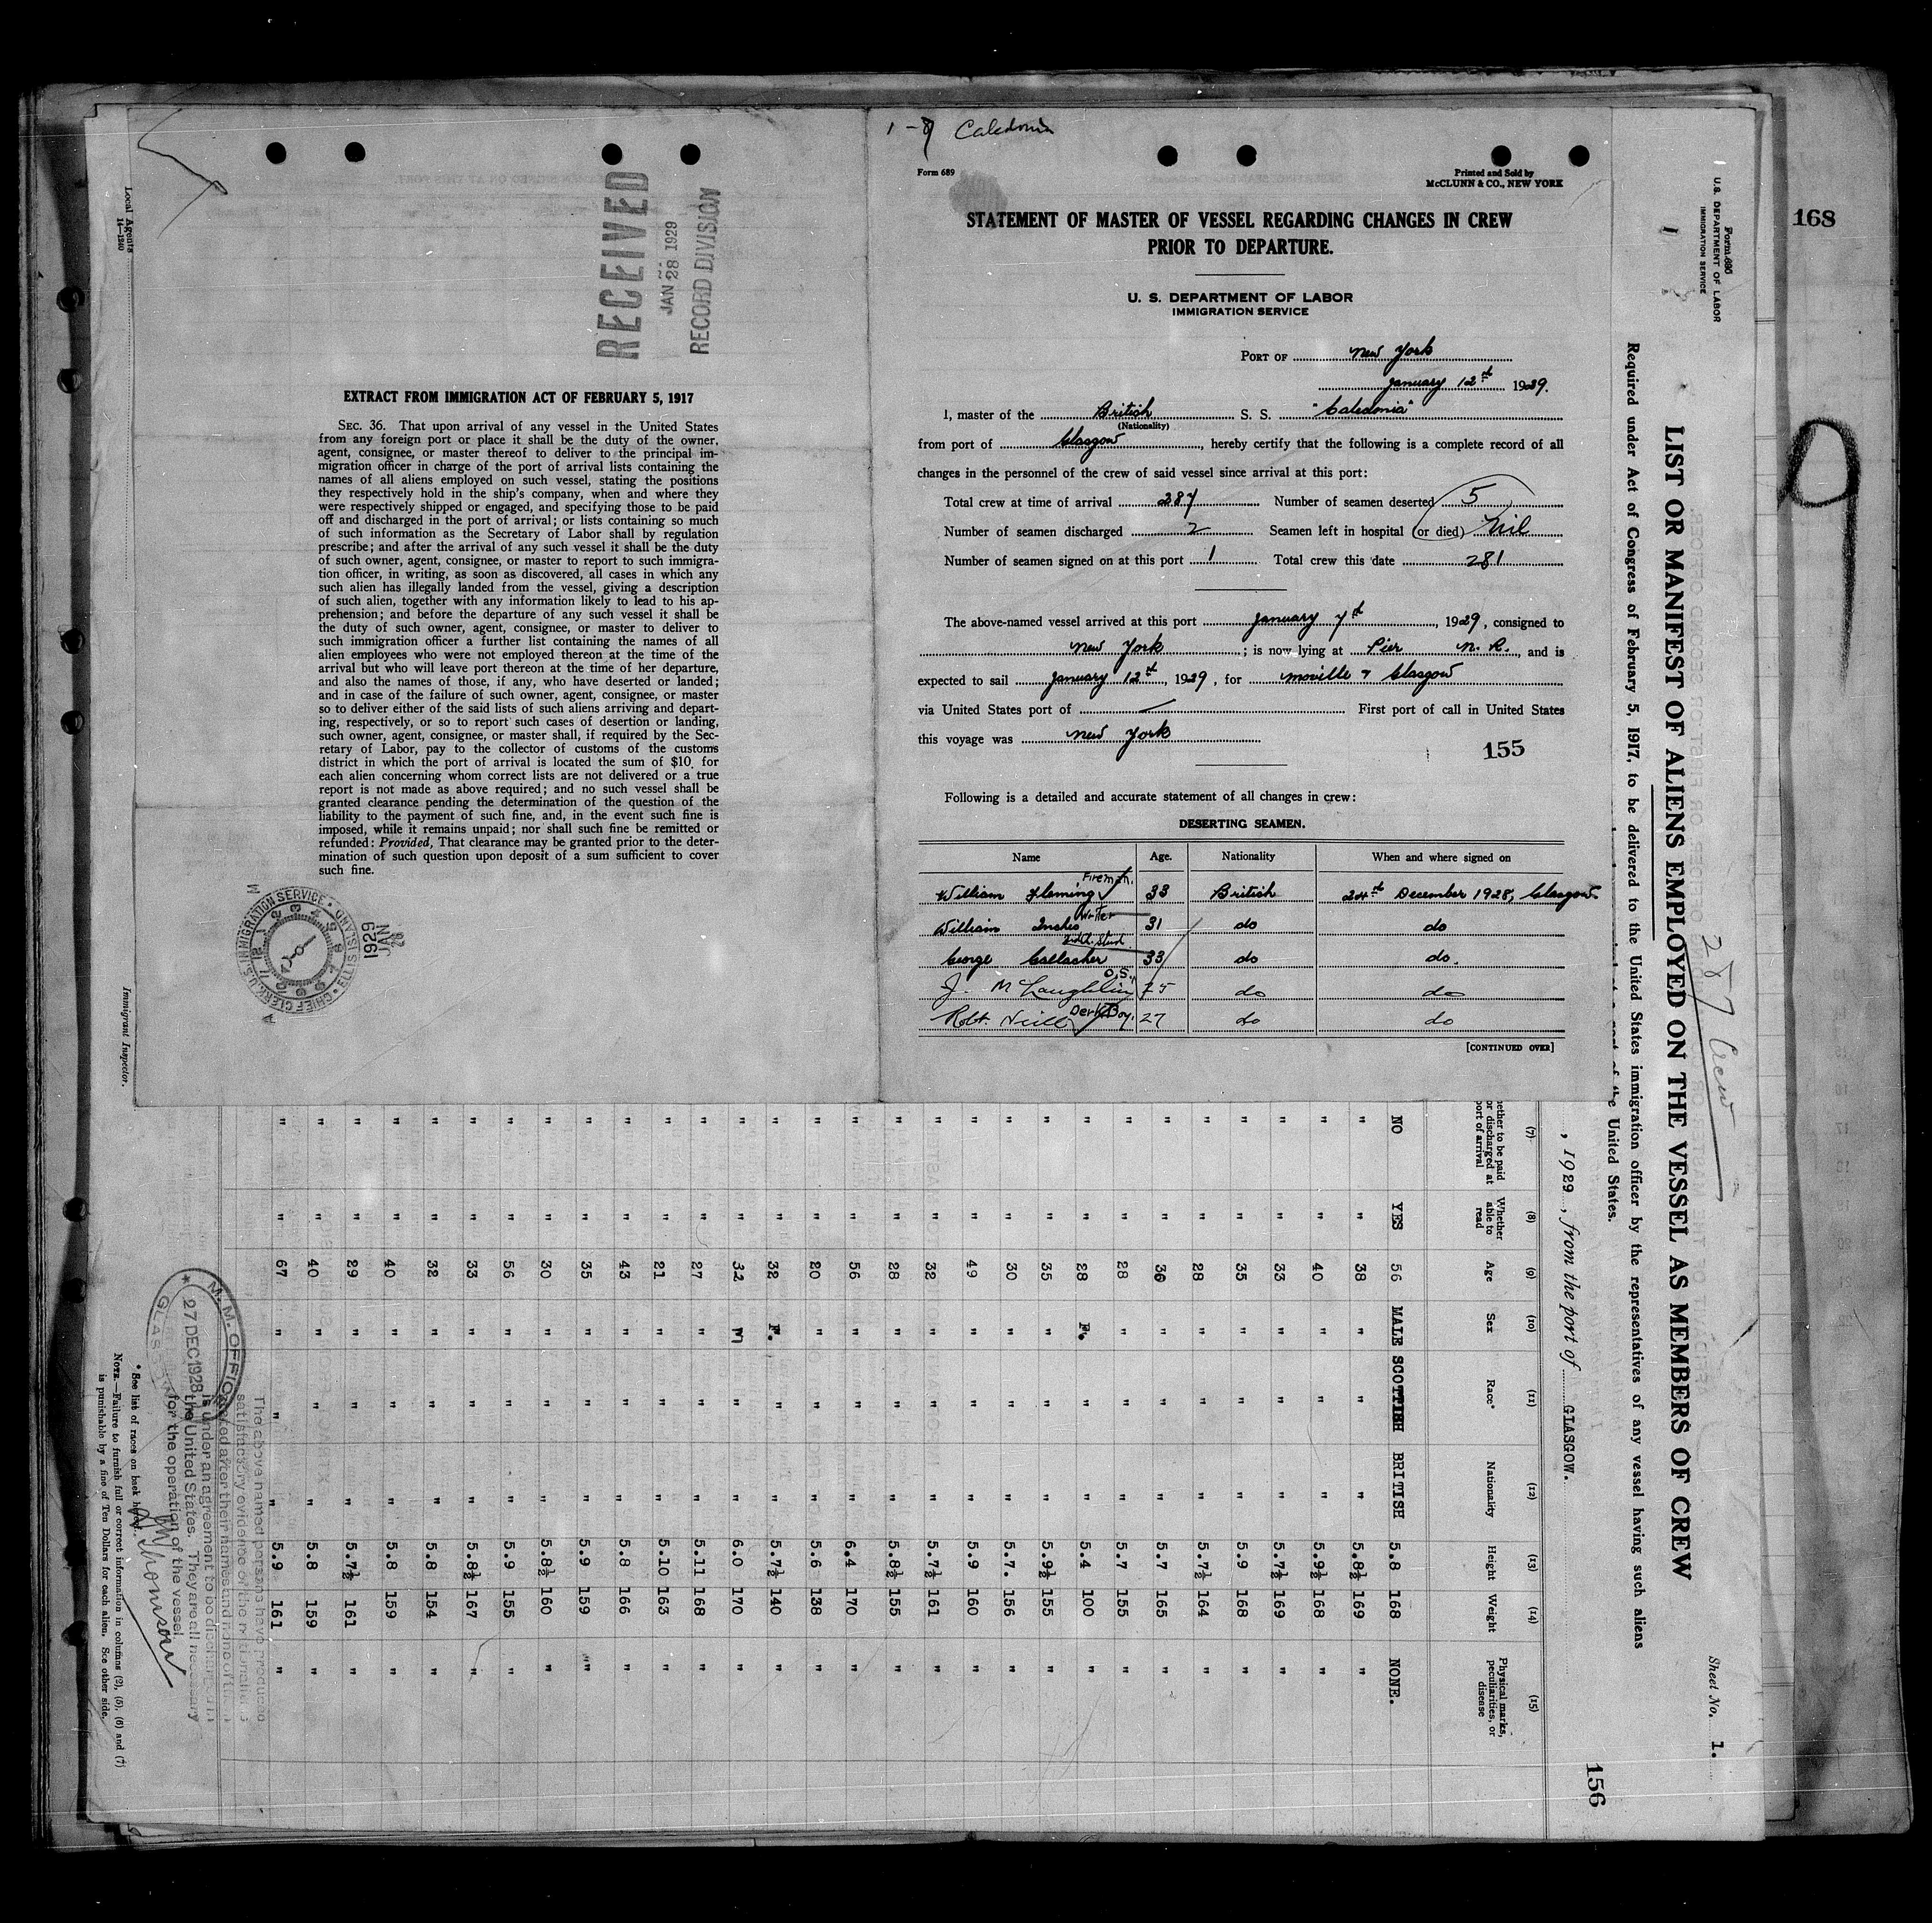 1-7 Caledonia
Form 689
Printed and Sold by
McCLUNN & CO., NEW YORK
STATEMENT OF MASTER OF VESSEL REGARDING CHANGES IN CREW
PRIOR TO DEPARTURE.
U. S. DEPARTMENT OF LABOR
IMMIGRATION SERVICE
PORT OF New York
January 12th 1929.
I, master of the British S. S. "Caledonia"
(Nationality)
from port of Glasgow, hereby certify that the following is a complete record of all
changes in the personnel of the crew of said vessel since arrival at this port:
Total crew at time of arrival 287 Number of seamen deserted 5
Number of seamen discharged 2 Seamen left in hospital (or died) Nil
Number of seamen signed on at this port 1 Total crew this date 281
The above-named vessel arrived at this port January 7th, 1929, consigned to
New York; is now lying at Pier N. R., and is
expected to sail January 12th, 1929, for Moville & Glasgow
via United States port of First port of call in United States
this voyage was New York
155
Following is a detailed and accurate statement of all changes in crew:
DESERTING SEAMEN.
Name Age. Nationality When and where signed on
William Fleming Fireman. 33 British 24th December 1928, Glasgow.
William Inches Writer 31 do do
George Gallacher 33 do do.
J. McLaughlin O.S. 25 do do
Robt. Neill Deck Boy. 27 do do
[CONTINUED OVER]
RECEIVED
JAN 28 1929
RECORD DIVISION
EXTRACT FROM IMMIGRATION ACT OF FEBRUARY 5, 1917
SEC. 36. That upon arrival of any vessel in the United States
from any foreign port or place it shall be the duty of the owner,
agent, consignee, or master thereof to deliver to the principal im-
migration officer in charge of the port of arrival lists containing the
names of all aliens employed on such vessel, stating the positions
they respectively hold in the ship's company, when and where they
were respectively shipped or engaged, and specifying those to be paid
off and discharged in the port of arrival; or lists containing so much
of such information as the Secretary of Labor shall by regulation
prescribe; and after the arrival of any such vessel it shall be the duty
of such owner, agent, consignee, or master to report to such immigra-
tion officer, in writing, as soon as discovered, all cases in which any
such alien has illegally landed from the vessel, giving a description
of such alien, together with any information likely to lead to his ap-
prehension; and before the departure of any such vessel it shall be
the duty of such owner, agent, consignee, or master to deliver to
such immigration officer a further list containing the names of all
alien employees who were not employed thereon at the time of the
arrival but who will leave port thereon at the time of her departure,
and also the names of those, if any, who have deserted or landed;
and in case of the failure of such owner, agent, consignee, or master
so to deliver either of the said lists of such aliens arriving and depart-
ing, respectively, or so to report such cases of desertion or landing,
such owner, agent, consignee, or master shall, if required by the Sec-
retary of Labor, pay to the collector of customs of the customs
district in which the port of arrival is located the sum of $10 for
each alien concerning whom correct lists are not delivered or a true
report is not made as above required; and no such vessel shall be
granted clearance pending the determination of the question of the
liability to the payment of such fine, and, in the event such fine is
imposed, while it remains unpaid; nor shall such fine be remitted or
refunded: Provided, That clearance may be granted prior to the deter-
mination of such question upon deposit of a sum sufficient to cover
such fine.
CHIEF CLERK, U.S. IMMIGRATION SERVICE • ELLIS ISLAND
JAN 28 1929
Local Agents
14—1240
Immigrant Inspector.
168
9
Form 690
U.S. DEPARTMENT OF LABOR
IMMIGRATION SERVICE
1
287 Crew
Sheet No. 1.
LIST OR MANIFEST OF ALIENS EMPLOYED ON THE VESSEL AS MEMBERS OF CREW
Required under Act of Congress of February 5, 1917, to be delivered to the United States immigration officer by the representatives of any vessel having such aliens
United States.
156
, 1929, from the port of GLASGOW.
(7) (8) (9) (10) (11) (12) (13) (14) (15)
Whether to be paid or discharged at port of arrival Whether able to read Age Sex Race* Nationality Height Weight Physical marks, peculiarities, or disease
NO YES 56 MALE SCOTTISH BRITISH 5.8 168 NONE.
" " 38 " " " 5.8½ 169 "
" " 40 " " " 5.9½ 168 "
" " 33 " " " 5.7½ 169 "
" " 35 " " " 5.9 168 "
" " 28 " " " 5.7½ 164 "
" " 30 " " " 5.7 165 "
" " 28 " " " 5.7 155 "
" " 28 F. " " 5.4 100 "
" " 35 " " " 5.9½ 155 "
" " 30 " " " 5.7. 156 "
" " 49 " " " 5.9 160 "
" " 32 " " " 5.7½ 161 "
" " 28 " " " 5.8½ 155 "
" " 56 " " " 6.4 170 "
" " 20 " " " 5.6 138 "
" " 32 F. " " 5.7½ 140 "
" " 32 M " " 6.0 170 "
" " 27 " " " 5.11 168 "
" " 21 " " " 5.10 163 "
" " 43 " " " 5.8 166 "
" " 35 " " " 5.9 159 "
" " 30 " " " 5.8½ 160 "
" " 56 " " " 5.9 155 "
" " 33 " " " 5.8½ 167 "
" " 32 " " " 5.8 154 "
" " 40 " " " 5.8 159 "
" " 29 " " " 5.7½ 161 "
" " 40 " " " 5.8 159 "
" " 67 " " " 5.9 161 "
The above named persons have produced
satisfactory evidence of the nationalities
stated after their names and none of them
is under an agreement to be discharged in
the United States. They are all necessary
for the operation of the vessel.
M. M. OFFICE
27 DEC 1928
GLASGOW
*See list of races on back hereof.
NOTE.—Failure to furnish full or correct information in columns (2), (5), (6) and (7)
is punishable by a fine of Ten Dollars for each alien. See other side.